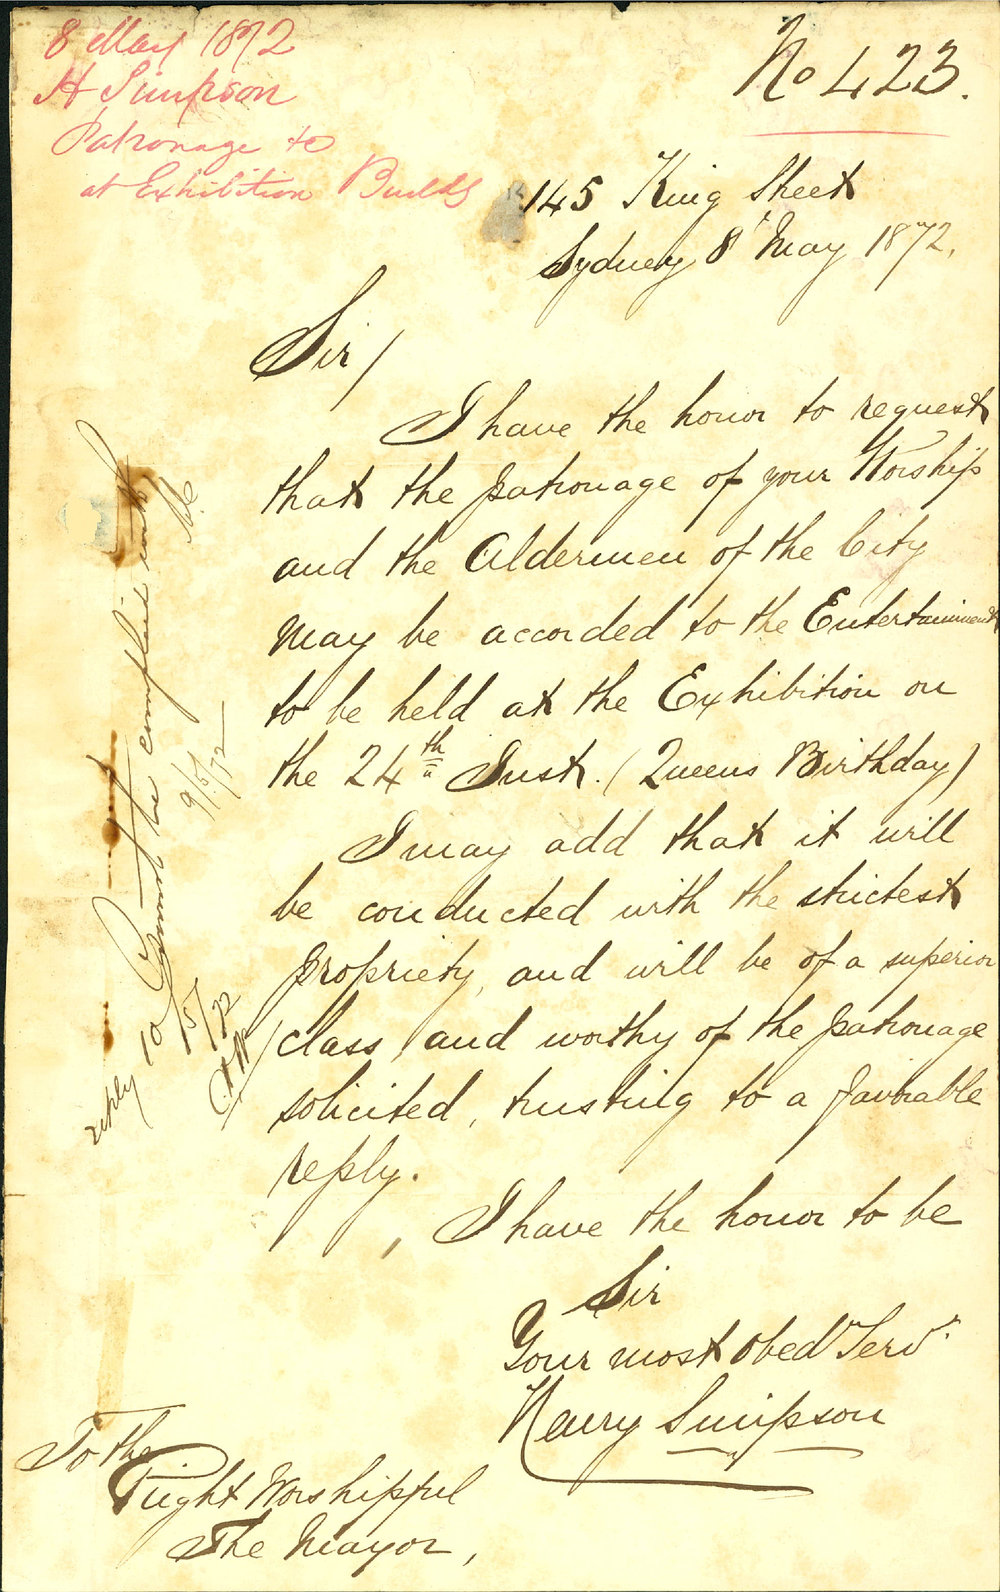 8 May 1872
H Simpson
Patronage to
at Exhibition Buildg
No 423.
145 King Street
Sydney 8 May 1872.
Sir/
I have the honor to request
that the patronage of your Worship
and the Aldermen of the City
may be accorded to the Entertainment
to be held at the Exhibition on
the 24th Inst. (Queens Birthday)
I may add that it will
be conducted with the strictest
propriety, and will be of a superior
class, and worthy of the patronage
solicited, trusting to a favorable
reply.
I have the honor to be
Sir
Your most obed Servt
Henry Simpson
To the
Right Worshipful
The Mayor,
Cannot be complied with
9/5/72
reply 10/5/72